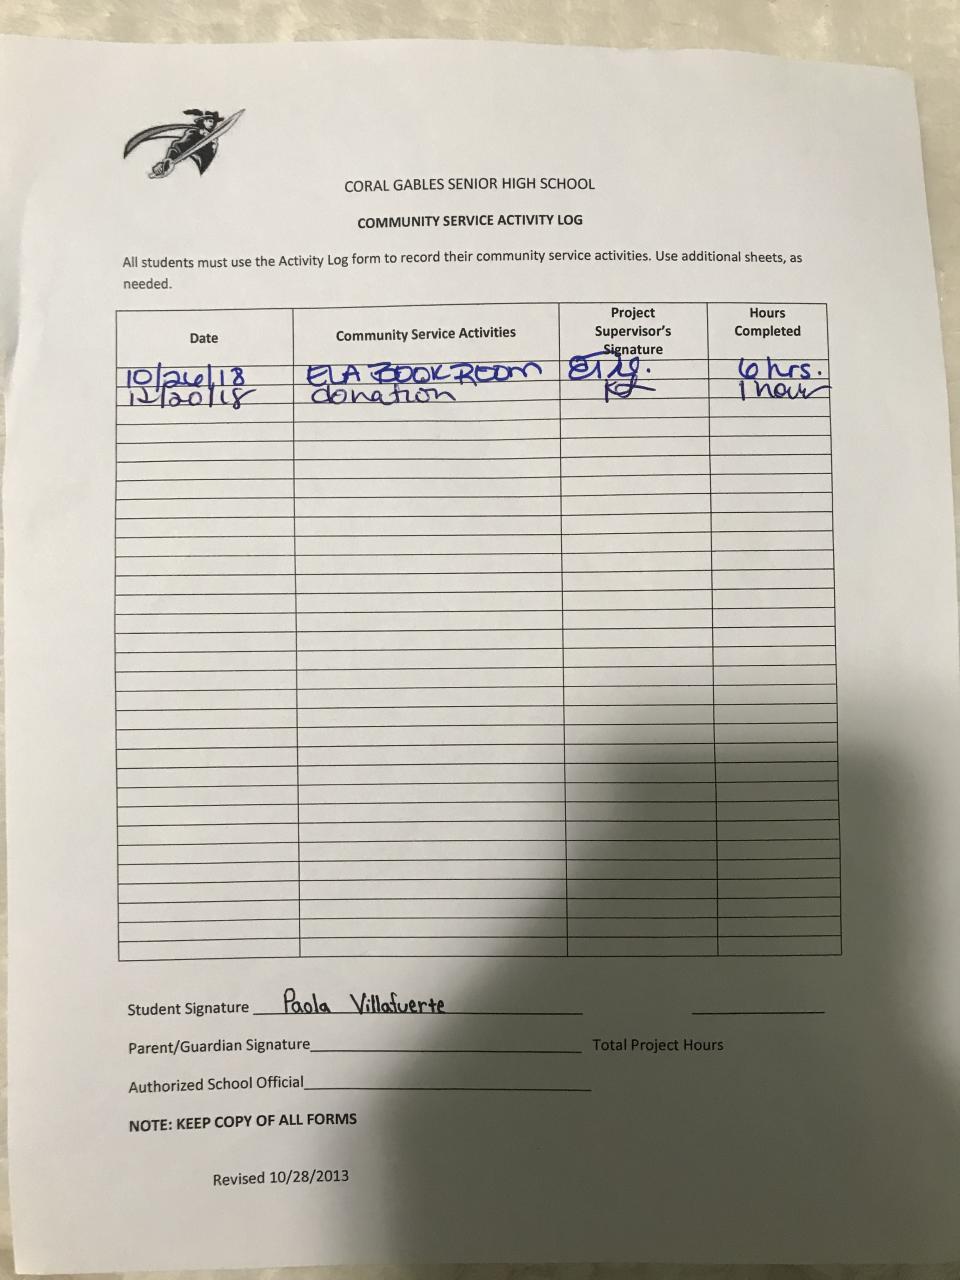 CORAL GABLES SENIOR HIGH SCHOOL
COMMUNITY SERVICE ACTIVITY LOG
All students must use the Activity Log form to record their community service activities. Use additional sheets, as
needed.
Date Community Service Activities Project Supervisor's Signature Hours Completed
10/26/18 ELA BOOK ROOM 6 hrs.
12/20/18 donation 1 hour
Student Signature Paola Villafuerte
Parent/Guardian Signature Total Project Hours
Authorized School Official
NOTE: KEEP COPY OF ALL FORMS
Revised 10/28/2013